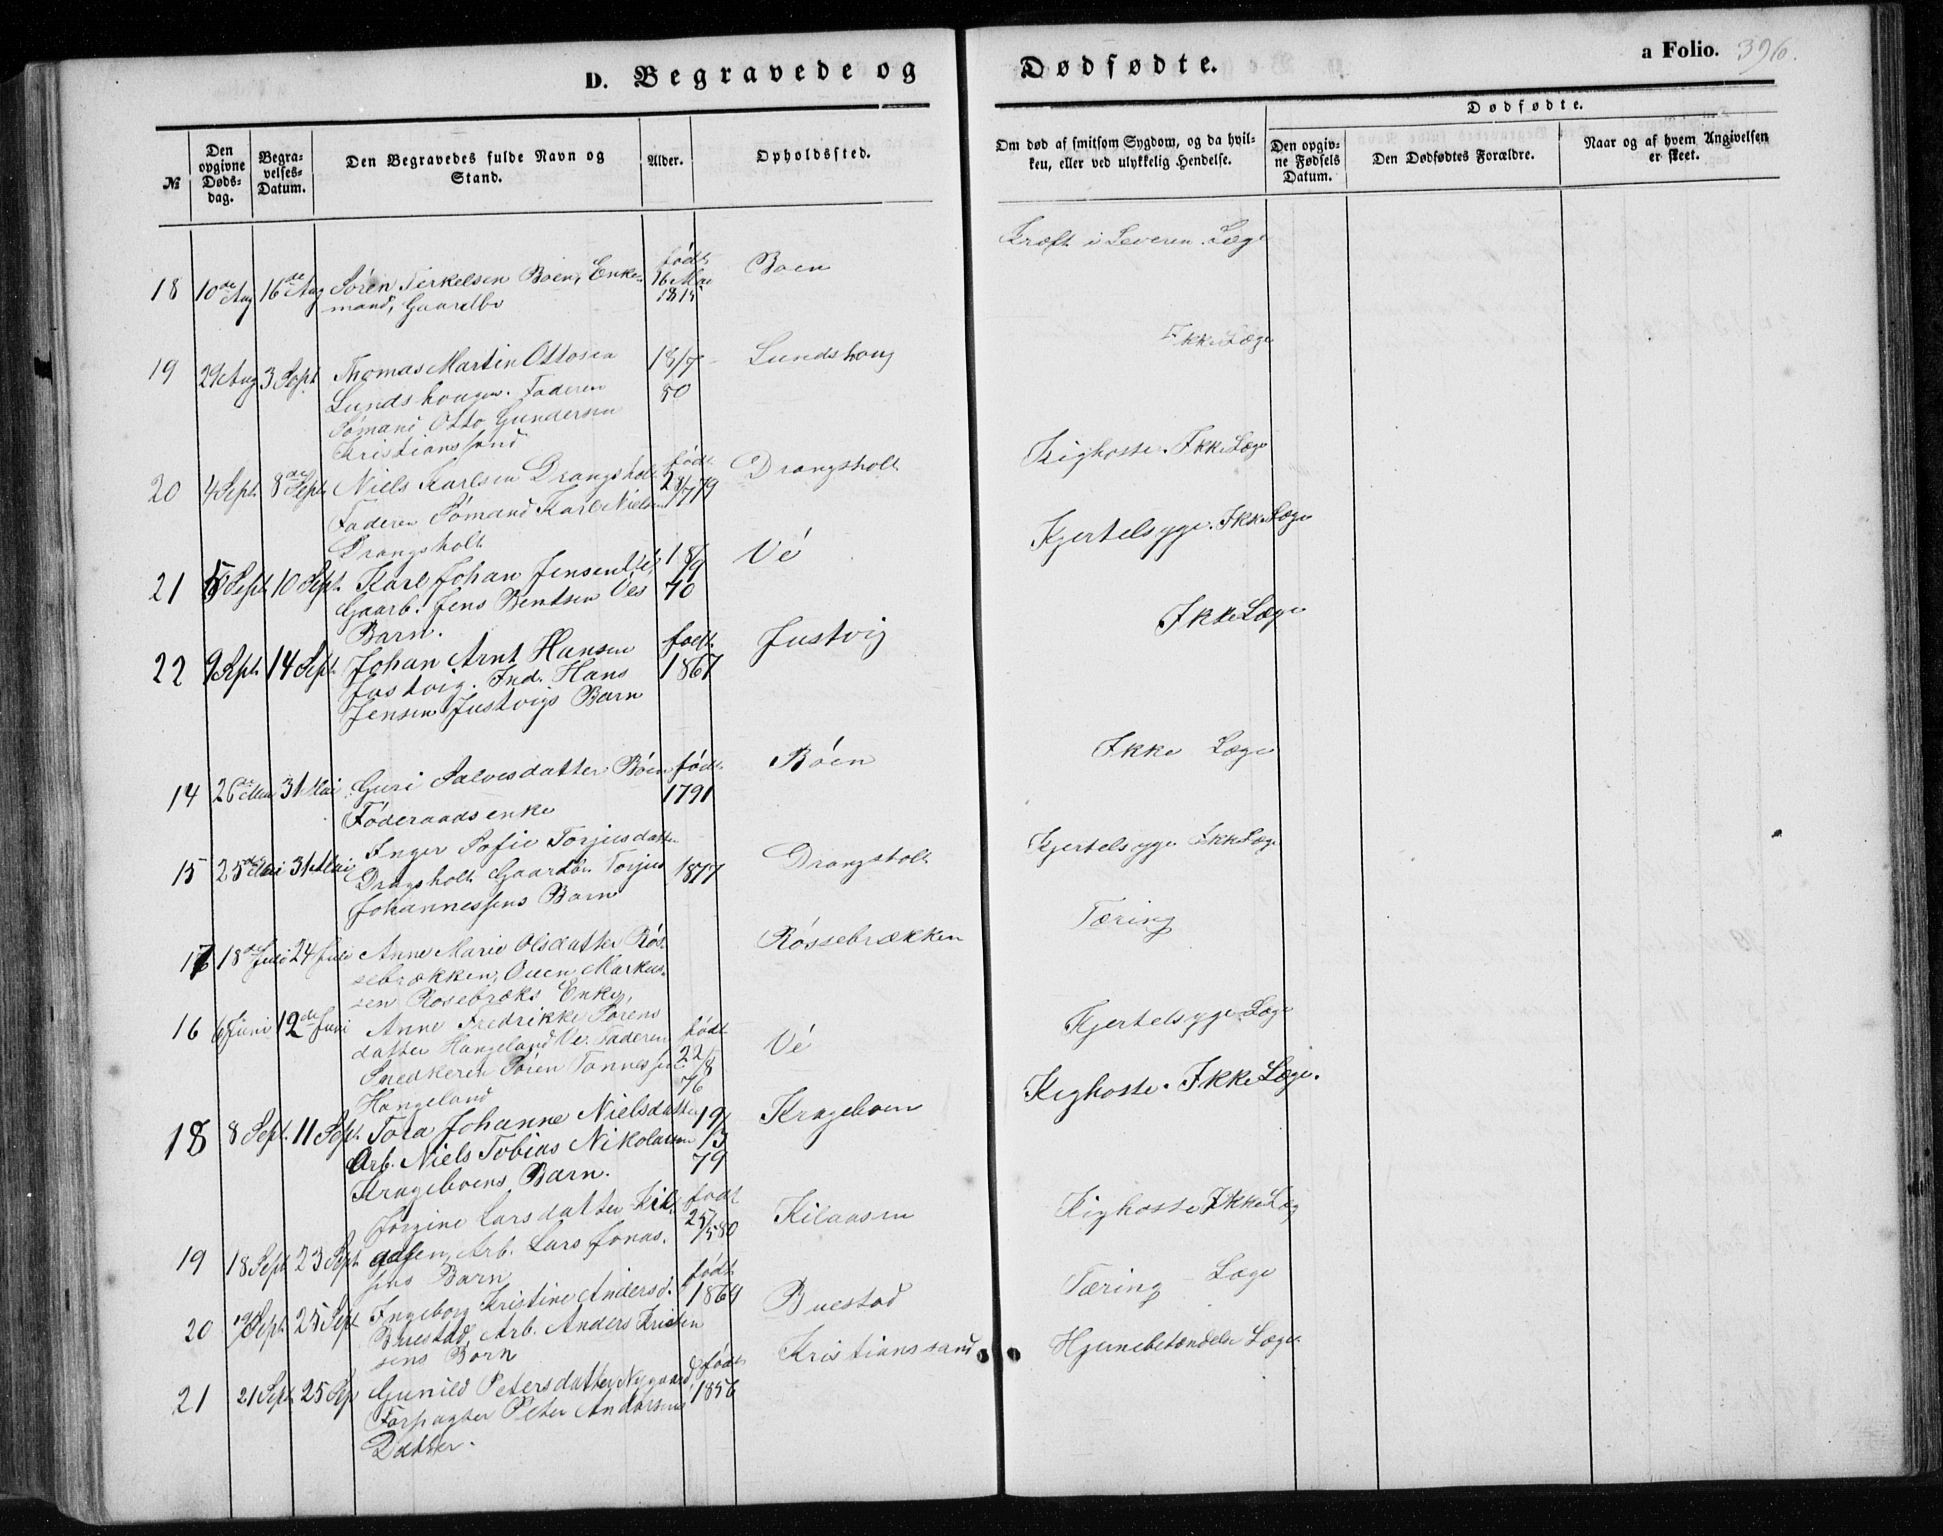 D. Begravede og Dødfødte.
a Folio. 396.
№
Den opgivne Døds-dag.
Begra-velses-Datum.
Den Begravedes fulde Navn og Stand.
Alder.
Opholdssted.
Om død af smitsom Sygdom, og da hvil-ken, eller ved ulykkelig Hendelse.
Dødfødte.
Den opgiv-ne Fødsels Datum.
Den Dødfødtes Forældre.
Naar og af hvem Angivelsen er skeet.
Kræft i Leveren. Læge
18 10de Aug 16de Aug Sören Terkelsen Boen, Enke- født 16 Mai 1815 Boen
mand, Gaardbr
19 29 Aug 3 Sept Thomas Martin Ottosen 18/7 80 Lundshoug Ikke Læge
Lundshougen. Faderen
Sømand Otto Gundersen
Kristianssand
20 4 Sept. 8de Sept. Niels Karlsen Drangsholt født 28/7 79 Drangsholt Kighoste. Ikke Læge
Faderen Sømand Karl Nielsen
Drangsholt
21 5 Sept. 10 Sept. Karl Johan Jensen Vé, 18/9 70 Vé Kjertelsyge. Ikke Læge
Gaarb. Jens Bentsen Ves
Barn.
22 9 Sept. 14 Sept. Johan Arnt Hansen født 1867 Justvig Ikke Læge
Justvig. Ind. Hans
Jensen Justvigs Barn
14 26de Mai 31 Mai Guri Salvesdatter Böen født 1791 Böen Ikke Læge
Föderaadsenke
15 25de Mai 31 Mai Inger Sofie Torjusdatter 1877 Drangsholt Kjertelsyge Ikke Læge
Dragsholt Gaardbr. Torjus
Johannessens Barn
17 18de Juli 24 Juli Anne Marie Olsdatter Rös- Rössebrækken Tæring
sebrækken, Ouen Markus-
sen Rosebræks Enke,
16 6 Juni 12de Juni Anne Fredrikke Sörens født 22/8 76 Vé Kjertelsyge Læge
datter Hangeland Ve. Faderen
Snedkeren Sören Tönnessen
Hangeland
18 8 Sept. 11 Sept. Tora Johanne Nielsdatter 19/3 79 Krageboen Kighoste. Ikke Læge.
Arb. Niels Tobias Nikolaisen
Krageboens Barn.
19 18 Sept 23 Sept Jorgine Larsdatter Kil- født 25/5 80 Kilaasen Kighoste Ikke Læg
aasen, Arb. Lars Jonas-
sens Barn
20 19de Sept. 25 Sept Ingeborg Kristine Andersd. født 1869 Buestad Tæring Læge
Buestad, Arb. Anders Kristen
sens Barn
21 21 Sept 25 Sep Gunild Petersdatter Nygaard født 1856 Kristianssand Hjernebetændelse Læge
Forpagter Peter Andersens
Datter.